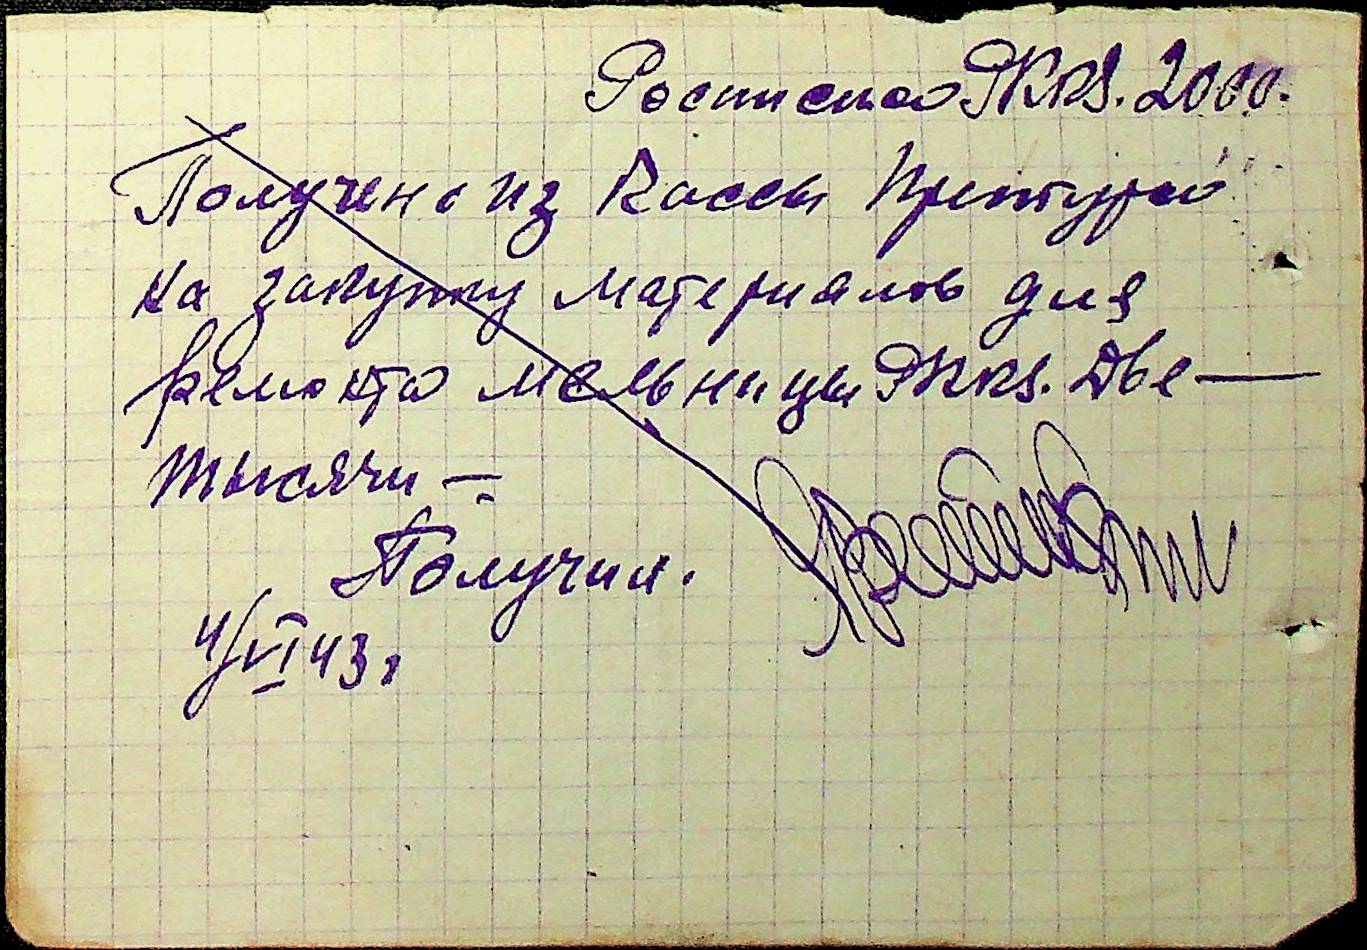 Росписка РККS. 2000.
Получено из Кассы Претурой
на закупку материалов для
ремонта мельницы РККS. Две —
тысячи —
Получил.
4/VI 43г